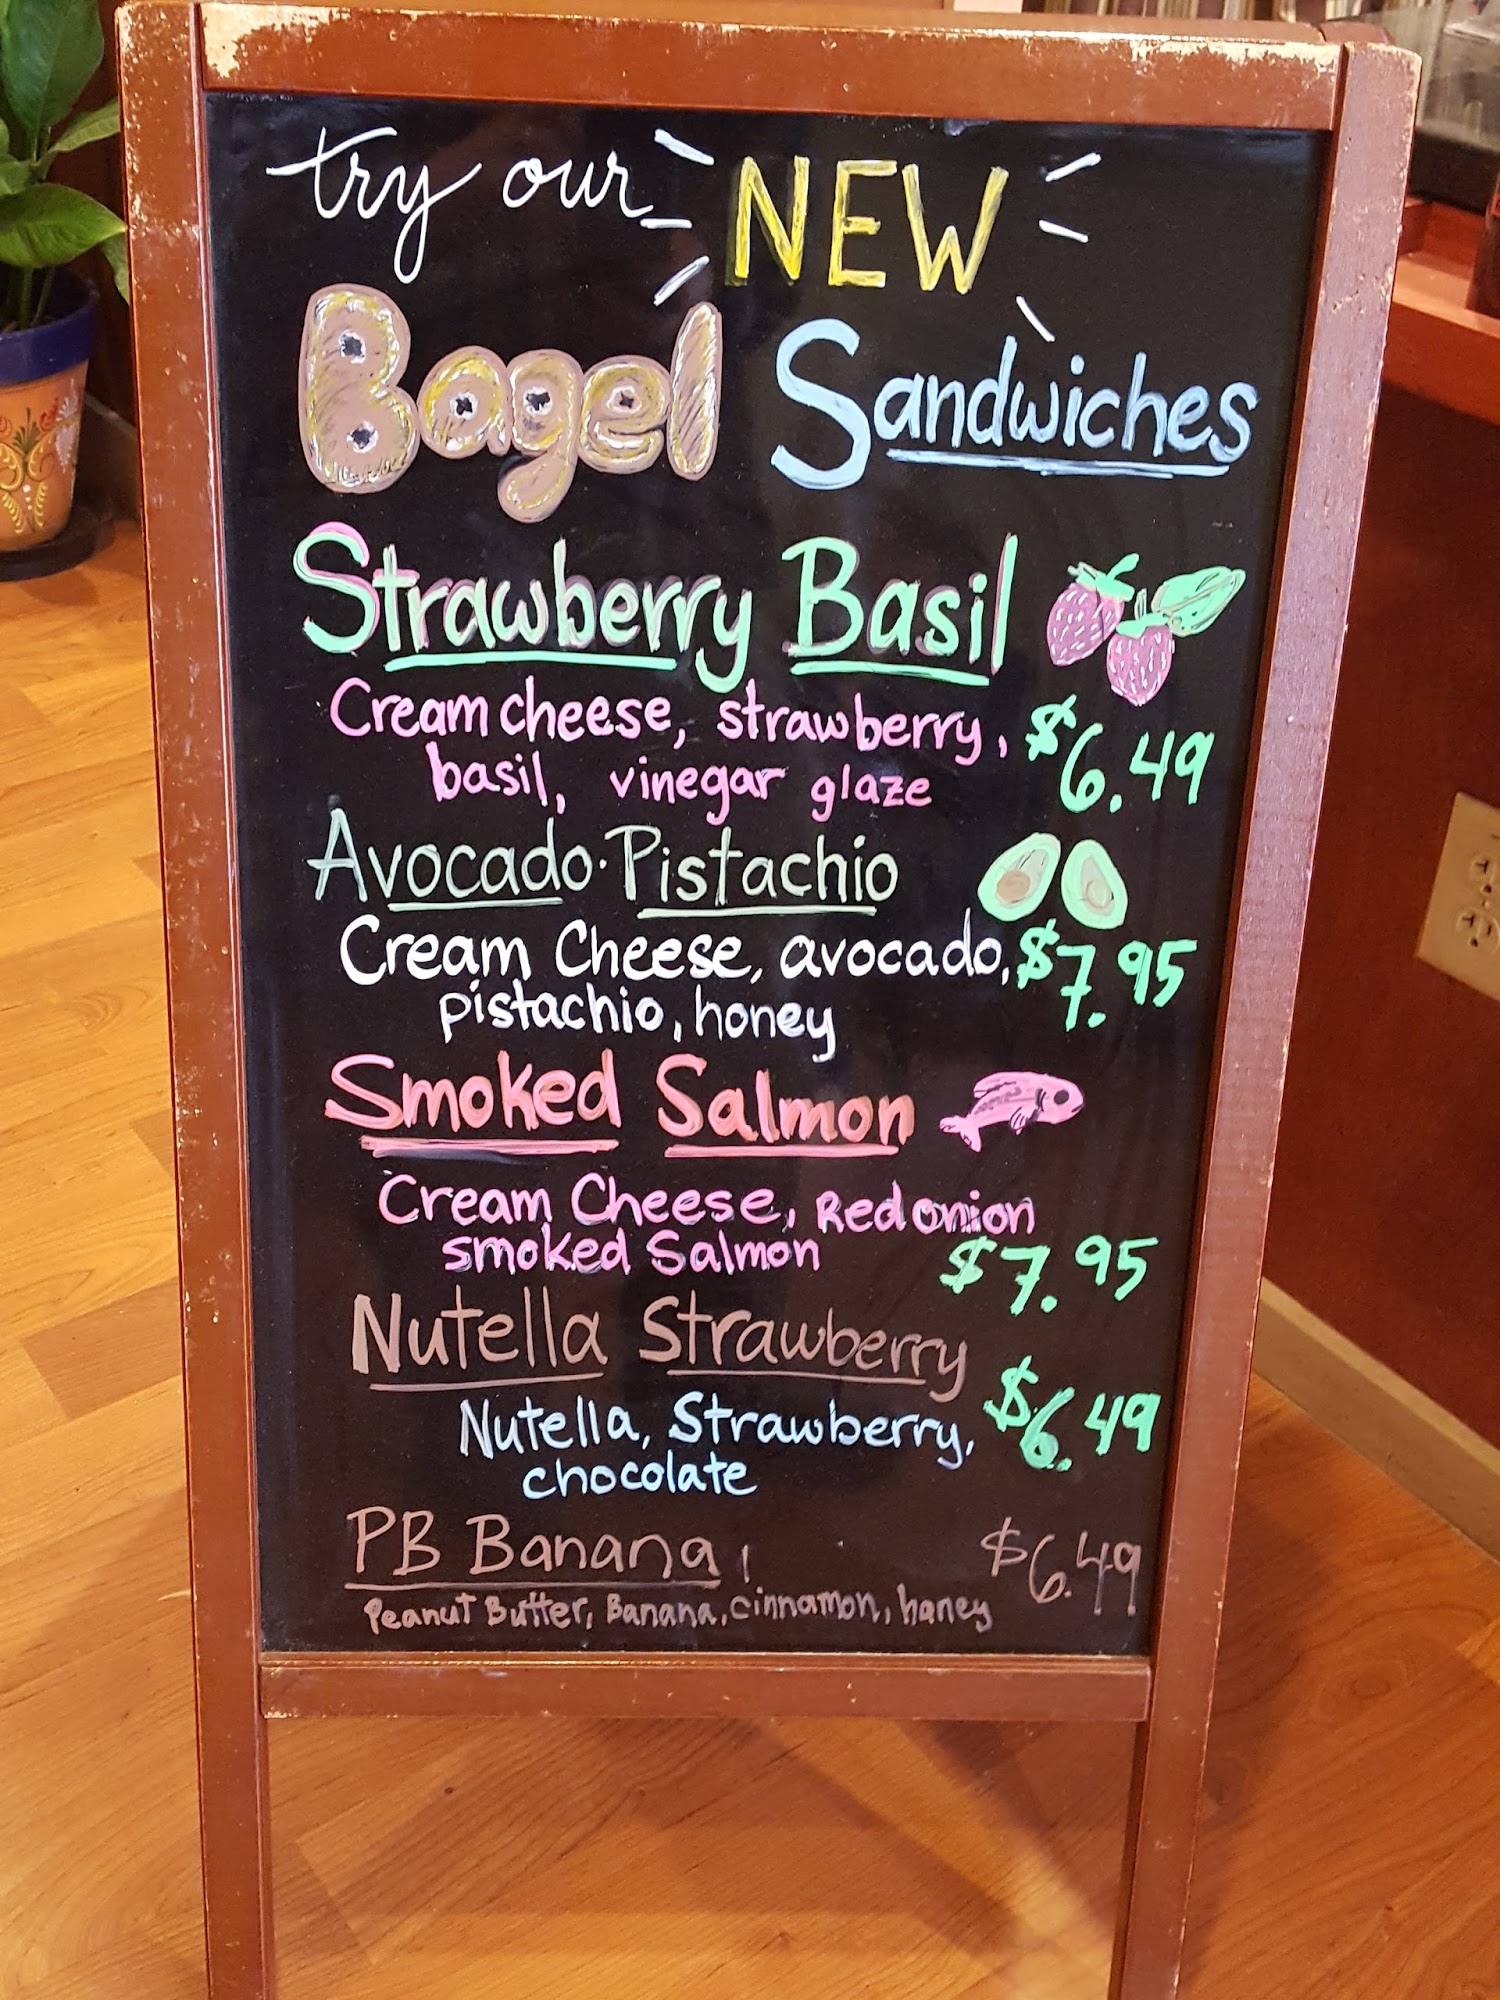 try our NEW
Bagel Sandwiches
Strawberry Basil
Cream cheese, strawberry, $6.49
basil, vinegar glaze
Avocado·Pistachio
Cream Cheese, avocado, $7.95
pistachio, honey
Smoked Salmon
Cream Cheese, Red onion
smoked Salmon $7.95
Nutella Strawberry
Nutella, Strawberry, $6.49
chocolate
PB Banana, $6.49
Peanut Butter, Banana, cinnamon, honey